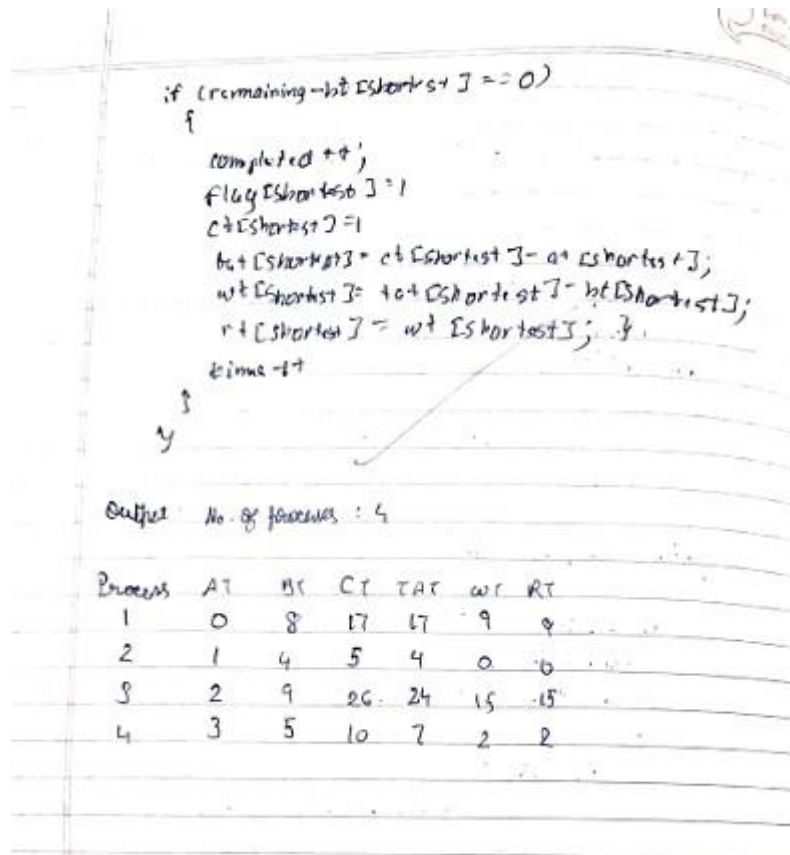 if (remaining-bt [shortest] == 0)
{
completed ++;
flag[shortest] = 1
ct[shortest] = 1
tat [shortest] = ct [shortest] - at [shortest];
wt [shortest] = tat [shortest] - bt[shortest];
rt [shortest] = wt [shortest]; }
time ++
}
}
Output No. of processes : 4
Process AT BT CT TAT WT RT
1 0 8 17 17 9 9
2 1 4 5 4 0 0
3 2 9 26 24 15 15
4 3 5 10 7 2 2